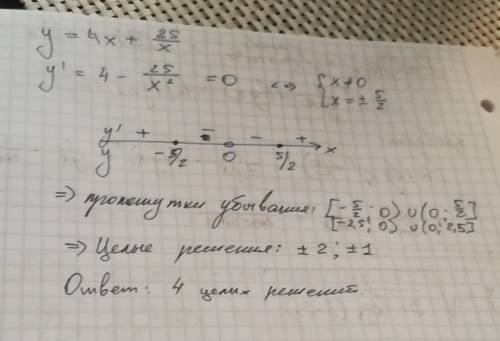 y = 4x + 25/x
y' = 4 - 25/x² = 0 <=> { x ≠ 0
x = ± 5/2
y' + - - +
y -5/2 0 5/2 x
=> промежутки убывания: [-5/2; 0) ∪ (0; 5/2]
[-2,5; 0) ∪ (0; 2,5]
=> Целые решения: ± 2; ±1
Ответ: 4 целых решений.